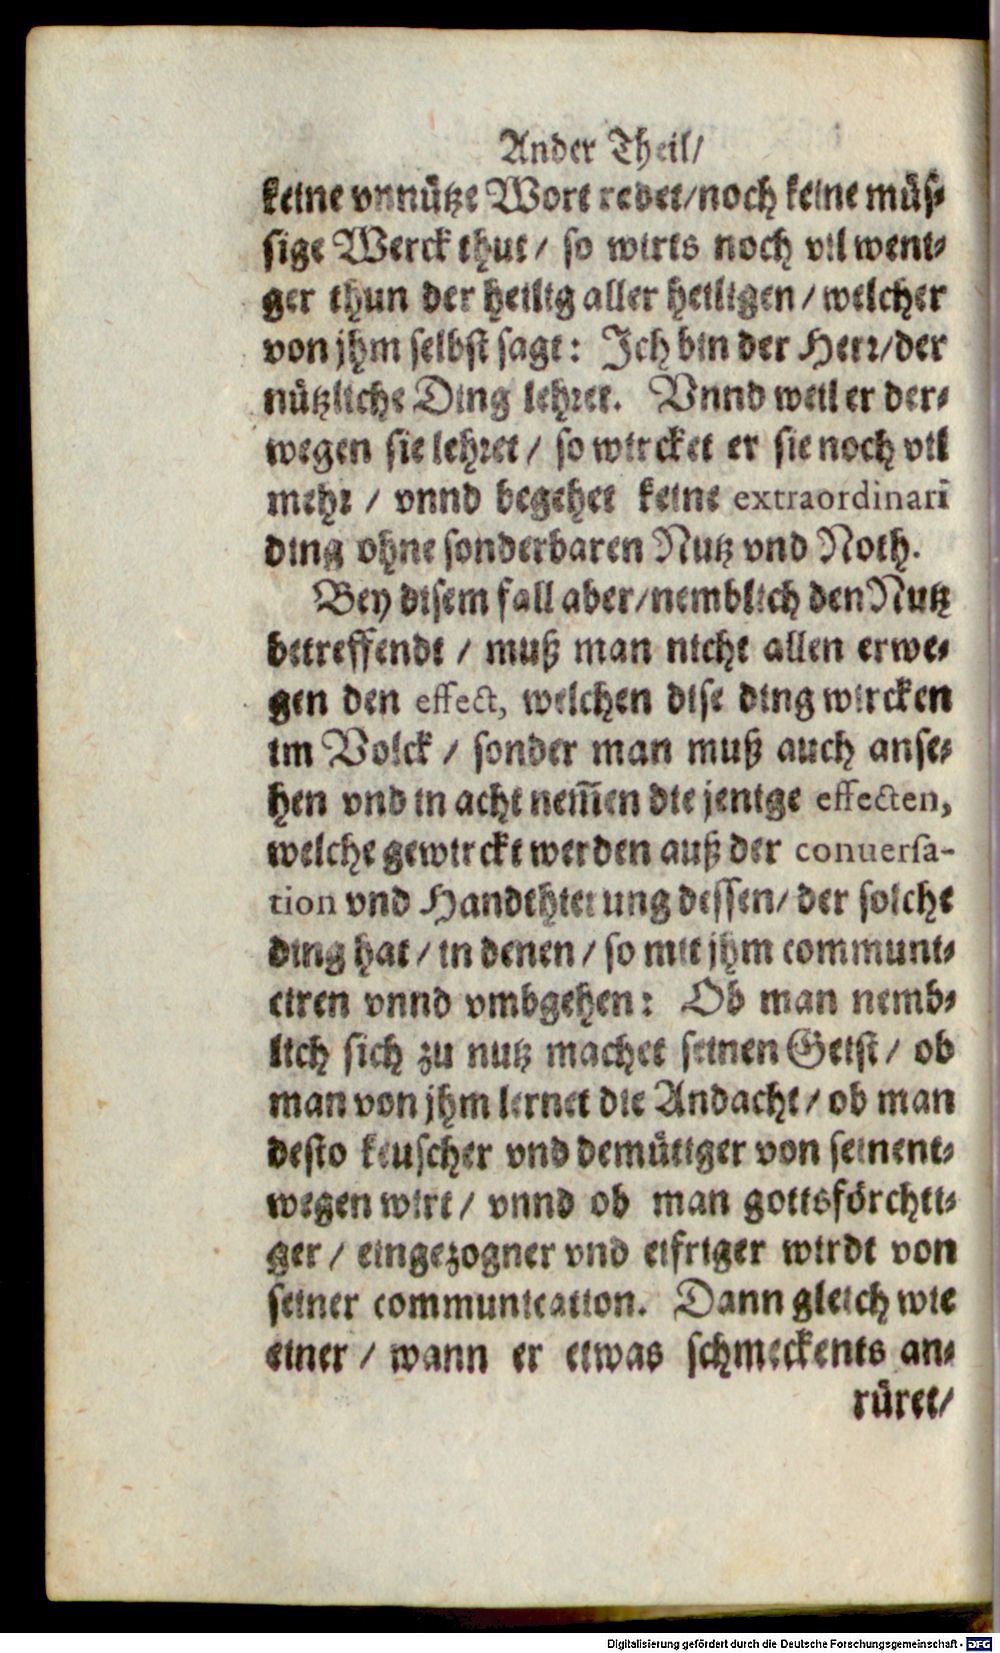 Ander Theil/
keine vnnuͤtze Wort redet/noch keine muͤs-
sige Werck thut/ so wirts noch vil weni-
ger thun der heilig aller heiligen/ welcher
von jhm selbst sagt: Ich bin der Herr/der
nuͤtzliche Ding lehret. Vnnd weil er der-
wegen sie lehret/ so wircket er sie noch vil
mehr/ vnnd begehet keine extraordinari
ding ohne sonderbaren Nutz vnd Noth.
Bey disem fall aber/nemblich den Nutz
betreffendt/ muß man nicht allen erwe-
gen den effect, welchen dise ding wircken
im Volck/ sonder man muß auch anse-
hen vnd in acht nem̃en die jenige effecten,
welche gewirckt werden auß der conuersa-
tion vnd Handthierung dessen/ der solche
ding hat/ in denen/ so mit jhm communi-
ciren vnnd vmbgehen: Ob man nemb-
lich sich zu nutz machet seinen Geist/ ob
man von jhm lernet die Andacht/ ob man
desto keuscher vnd demuͤtiger von seinent-
wegen wirt/ vnnd ob man gottsfoͤrchti-
ger/ eingezogner vnd eifriger wirdt von
seiner communication. Dann gleich wie
einer/ wann er etwas schmeckents an-
ruͤret/
Digitalisierung gefördert durch die Deutsche Forschungsgemeinschaft - DFG